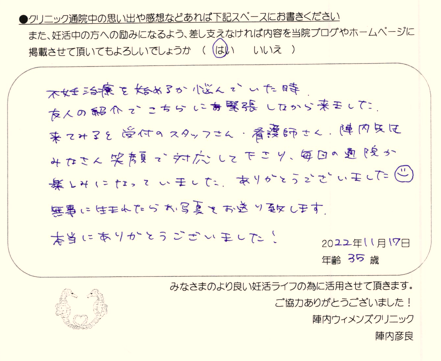 ●クリニック通院中の思い出や感想などあれば下記スペースにお書きください
また、妊活中の方への励みになるよう、差し支えなければ内容を当院ブログやホームページに
掲載させて頂いてもよろしいでしょうか （ はい　いいえ ）
不妊治療を始めるか悩んでいた時、
友人の紹介でこちらに緊張しながら来ました。
来てみると受付のスタッフさん・看護師さん・陣内先生
みなさん笑顔で対応して下さり、毎回の通院が
楽しみになっていました。ありがとうございました
無事に生まれたらお写真をお送り致します。
本当にありがとうございました！
2022年11月17日
年齢 35 歳
みなさまのより良い妊活ライフの為に活用させて頂きます。
ご協力ありがとうございました！
陣内ウィメンズクリニック
陣内彦良